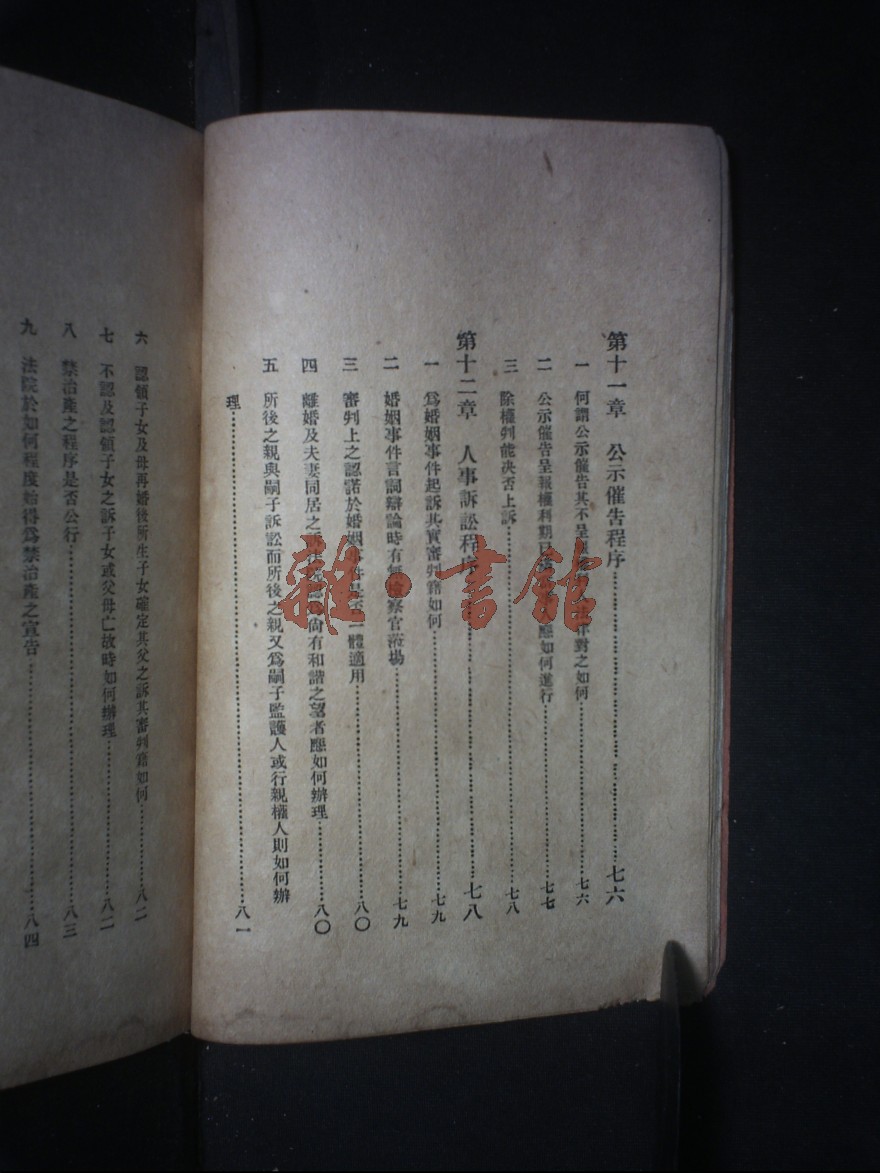 第十一章 公示催告程序……七六
一 何謂公示催告其不呈報權利 法律對之如何……七六
二 公示催告呈報權利期 應如何進行……七七
三 除權判能决否上訴……七八
第十二章 人事訴訟程序……七八
一 爲婚姻事件起訴其實審判籍如何……七九
二 婚姻事件言詞辯論時有無檢察官蒞場……七九
三 審判上之認諾於婚姻事件是否一體適用……八〇
四 離婚及夫妻同居之訴 尙有和諧之望者應如何辦理……八〇
五 所後之親與嗣子訴訟而所後之親又爲嗣子監護人或行親權人則如何辦
理……八一
六 認領子女及母再婚後所生子女確定其父之訴其審判籍如何……八二
七 不認及認領子女之訴子女或父母亡故時如何辦理……八二
八 禁治產之程序是否公行……八三
九 法院於如何程度始得爲禁治產之宣告……八四
雜·書館